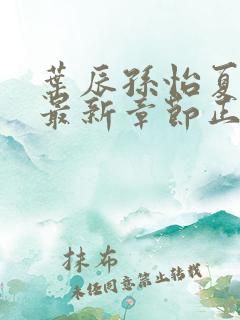 葉辰孫怡夏
最新章節正
抹布
未经同意禁止转载